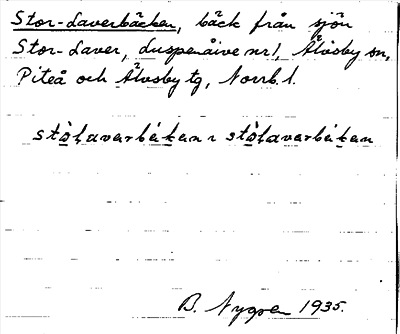 Stor-Laverbäcken, bäck från sjön
Stor-Laver, Luspenåive nr 1, Älvsby sn,
Piteå och Älvsby tg, Norrb. l.
stòḷavarbékan ı stòḷavarbékan
B. Nygren 1935.